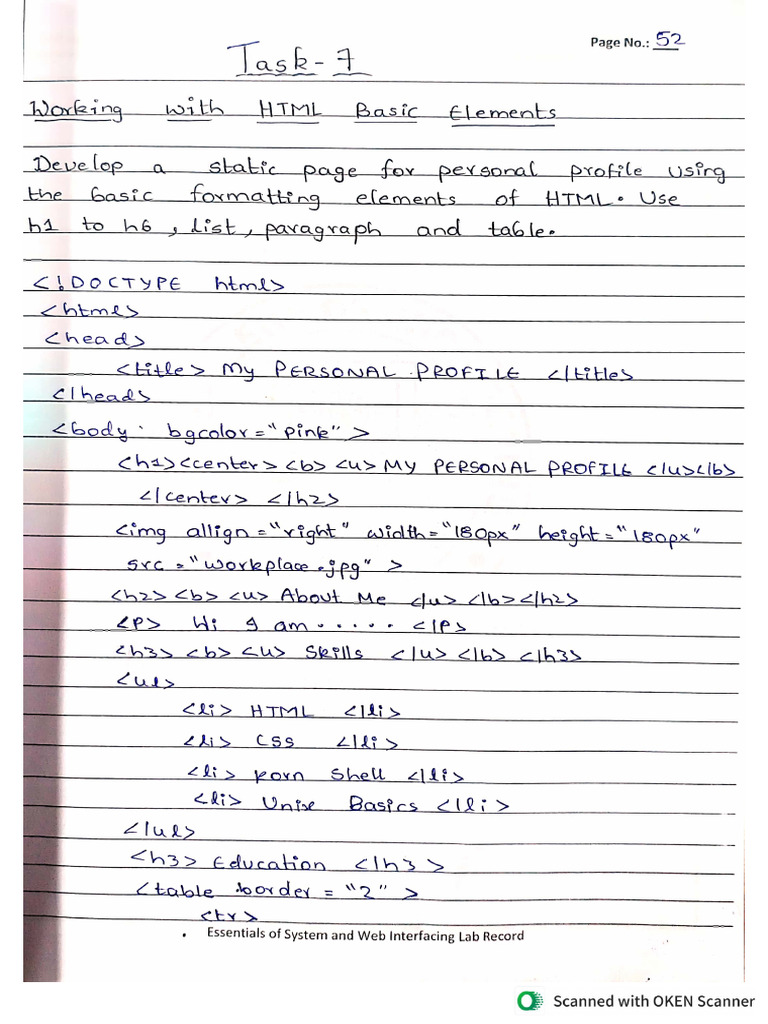 Page No.: 52
Task-7
Working with HTML Basic Elements
Develop a static page for personal profile using
the basic formatting elements of HTML. Use
h1 to h6, list, paragraph and table.
<!DOCTYPE html>
<html>
<head>
<title> My PERSONAL PROFILE </title>
</head>
<body bgcolor="pink">
<h1><center><b><u>MY PERSONAL PROFILE </u></b>
</center> </h2>
<img allign="right" width="180px" height="180px"
src="workplace.jpg">
<h2> <b> <u> About Me </u> </b></h2>
<P> Hi I am..... </P>
<h3> <b> <u> Skills </u> </b> </h3>
<ul>
<li> HTML </li>
<li> CSS </li>
<li> Korn Shell </li>
<li> Unix Basics </li>
</ul>
<h3> Education </h3>
<table border = "2">
<tr>
Essentials of System and Web Interfacing Lab Record
Scanned with OKEN Scanner